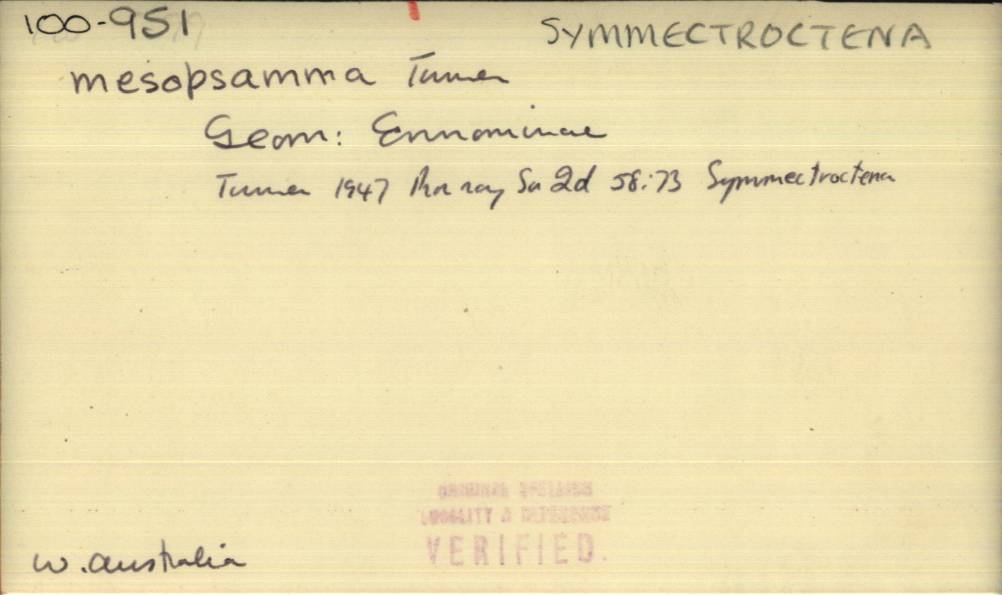 100-951
SYMMECTROCTENA
mesopsamma Turner
Geom: Ennominae
Turner 1947 Proc roy Soc Qd 58:73 Symmectroctena
ORIGINAL SPELLING
LOCALITY & REFERENCE
VERIFIED.
W. Australia